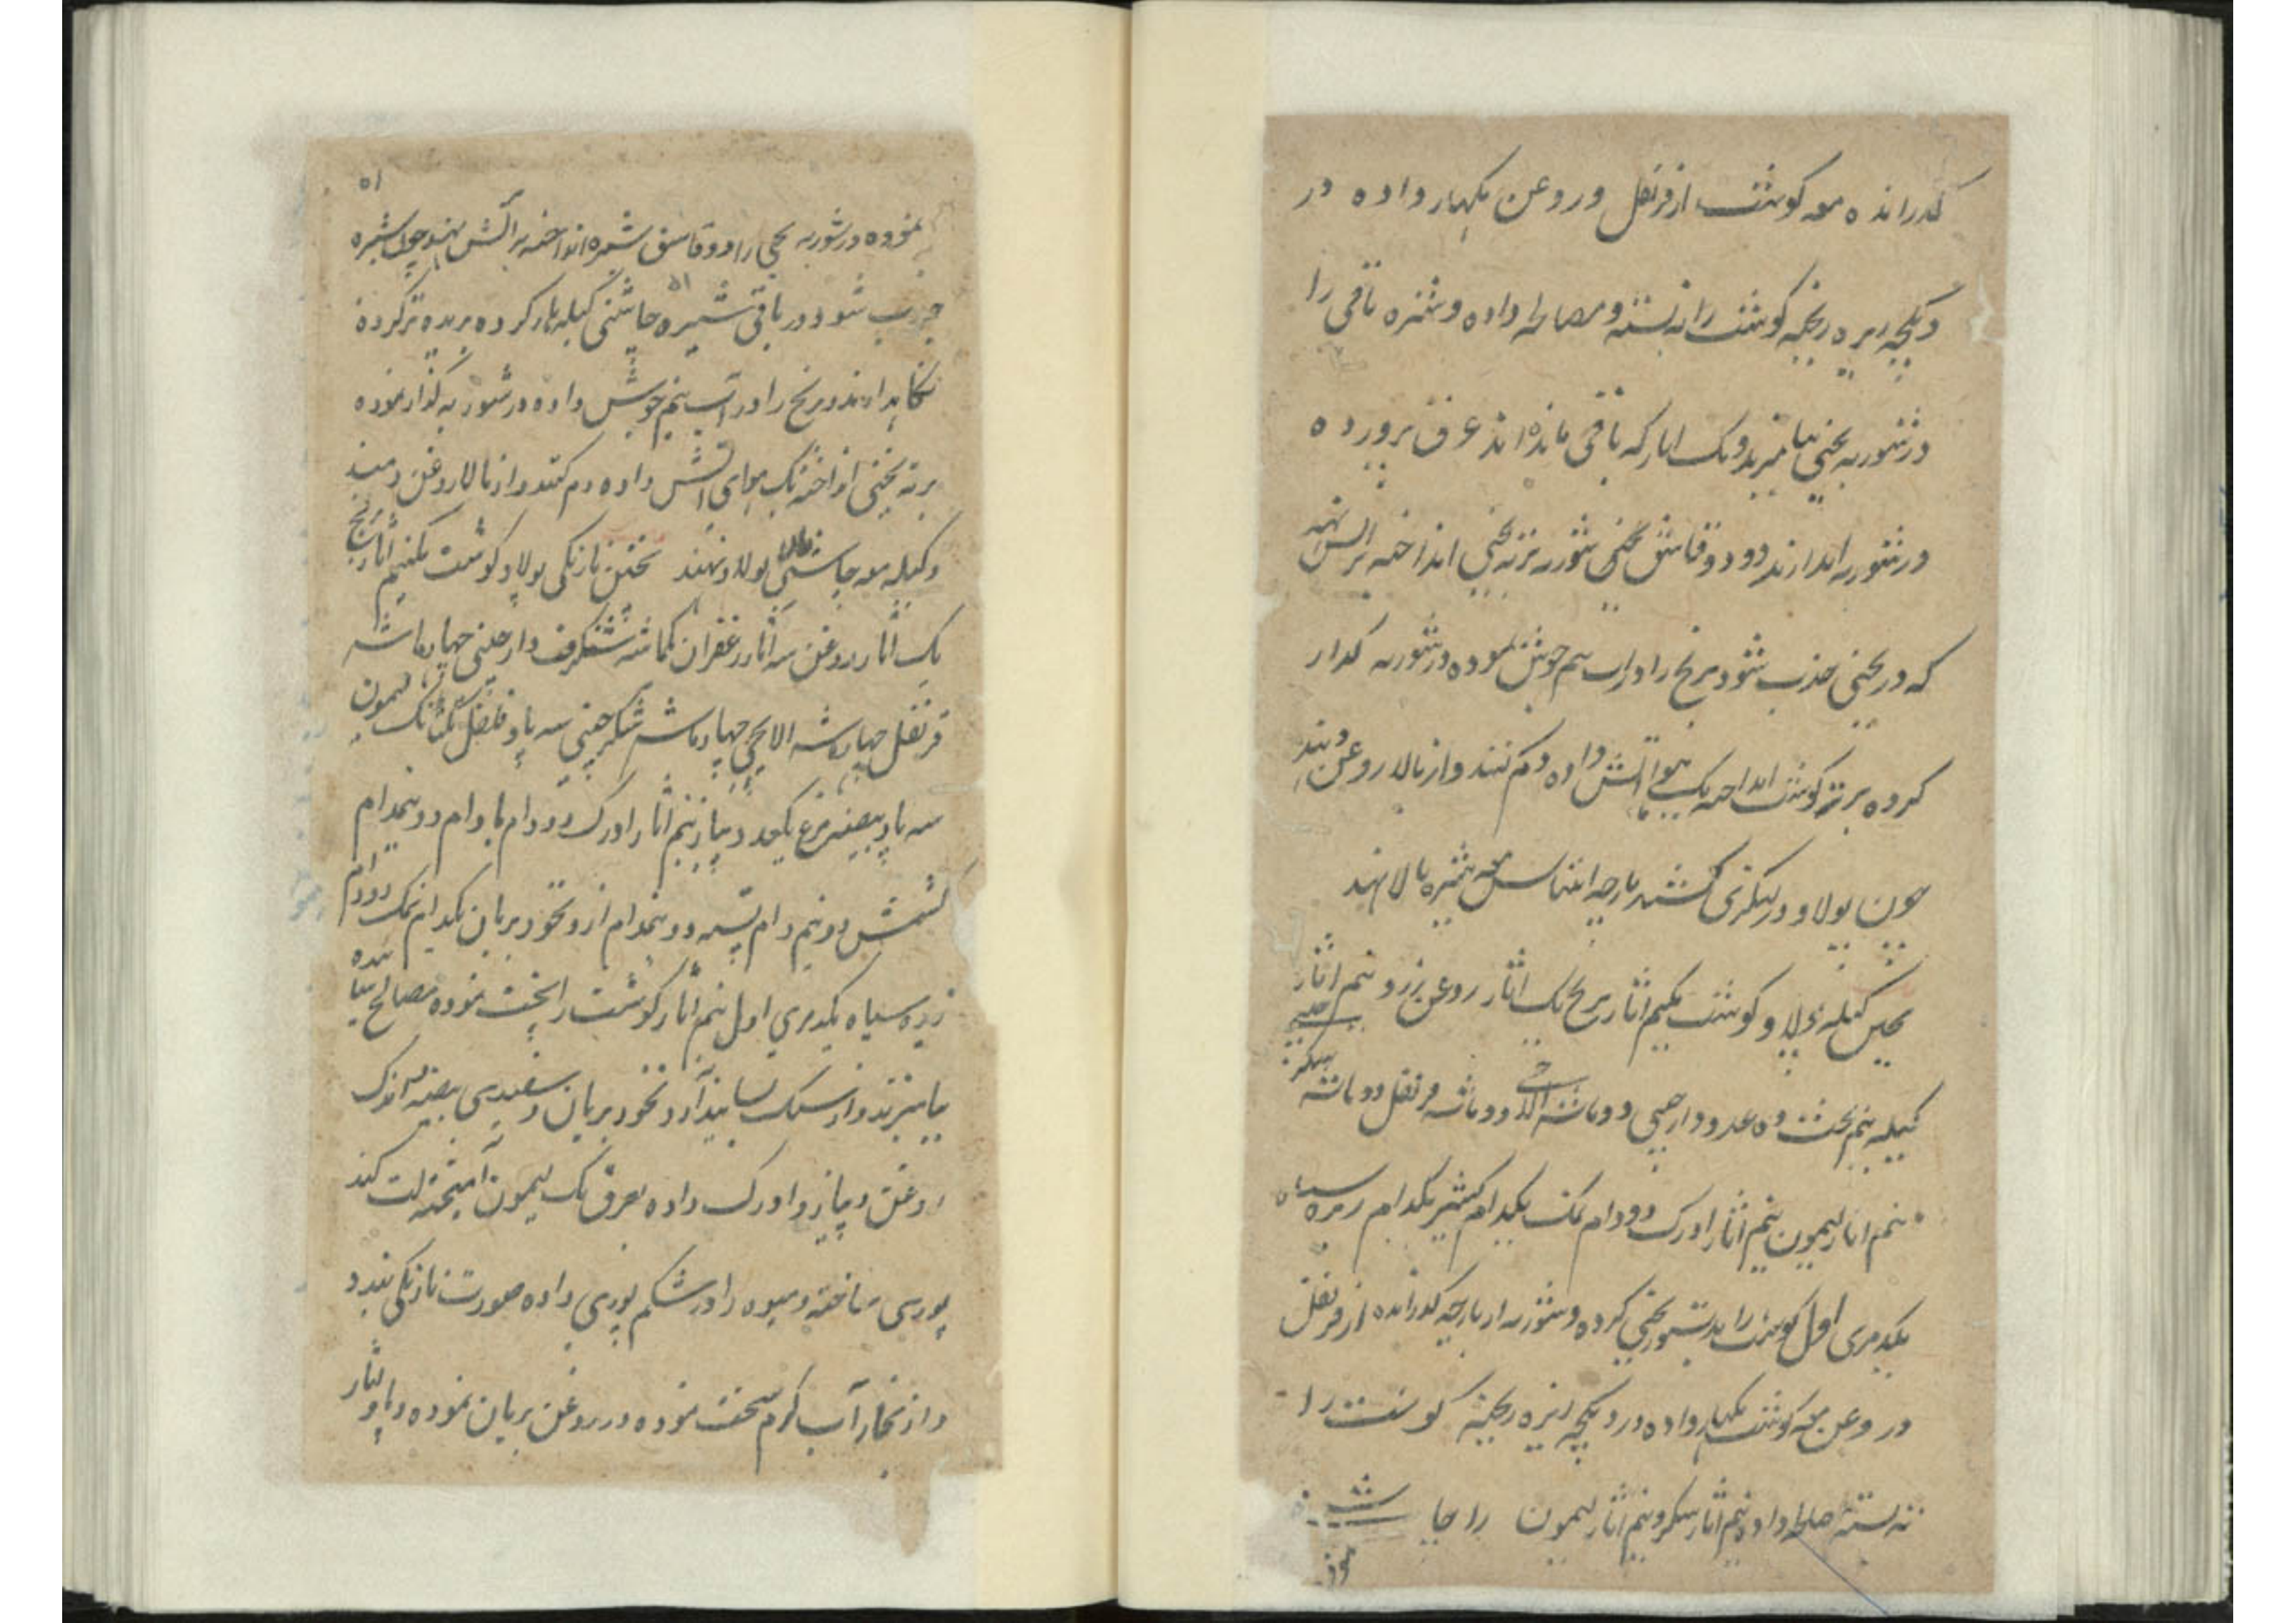 گذرانده معه گوشت از قرنفل و روغن بگهار داده در
دیگچه زیره ریخته گوشت را ته بسته و مصالحه داده و شیره باقی را
در شوربه یخنی بیامیزند و یک انار که باقی مانده اند عرق برورده
در شوربه اندازند دو دو قاشق یخنی شوربه بر ته یخنی انداخته بر آتش نهند
که در یخنی جذب شود برنج را در آب نیم جوش نموده در شوربه گذار
کرده بر ته گوشت انداخته یک هوا آتش داده دم کنند و از بالا روغن دهند
چون پولاو در لنگری کشند پارچه انناس معه شیره بالا نهند
کیله پولاو گوشت یکنیم اثار برنج یک اثار روغن زرد نیم اثار
کیله نیم پخت ده عدد دارچینی دو ماشه الاچی دو ماشه قرنفل دو ماشه شکر
نیم اثار لیمون نیم اثار ادرک دو دام نمک یکدام کشنیز یکدام زیره سیاه
یکدمری اول گوشت را بدستور یخنی کرده و شوربه از پارچه گذرانده از قرنفل
و روغن معه گوشت بگهار داده در دیگچه زیره ریخته گوشت را
ته بسته مصالحه داده نیم اثار شکر و نیم اثار لیمون را چاشنی
نموده
۵۱
نموده در شوربه یخنی را دو قاشق شیره انداخته بر آتش نهند چون شیره
جذب شود در باقی شیره چاشنی کیله پار کرده بریده تر کرده
نگاهدارند و برنج را در آب نیم جوش داده در شوربه گذار نموده
بر ته یخنی انداخته یک هوای آتش داده دم کنند و از بالا روغن دهند
و کیله معه چاشنی بالا پولاو نهند پختن نارنگی پولاو گوشت یکنیم اثار برنج
یک اثار روغن سه اثار زعفران یکماشه شنگرف دارچینی چهار ماشه
قرنفل چهار ماشه الایچی چهار ماشه شکر چینی سه پاو فلفل لیمون
سه پاو بیضه مرغ یکعدد پیاز نیم اثار ادرک دو دام بادام دو نیمدام
کشمش دو نیم دام پسته دو نیمدام آرد نخود بریان یکدام نمک دو دام
زیره سیاه یکدمری اول نیم اثار گوشت را پخت نموده مصالح سائیده
بیامیزند و از سنگ سایند آرد نخود بریان و سفیدی بیضه اندک
روغن و پیاز و ادرک داده بعرق یک لیمون آمیخته لت کند
پوری ساخته و میوه را در شکم پوری داده صورت نارنگی بندد
و از بخار آب گرم سخت نموده در روغن بریان نموده و پاو اثار